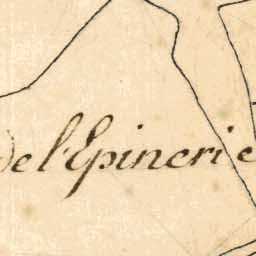 de l'Epincrie